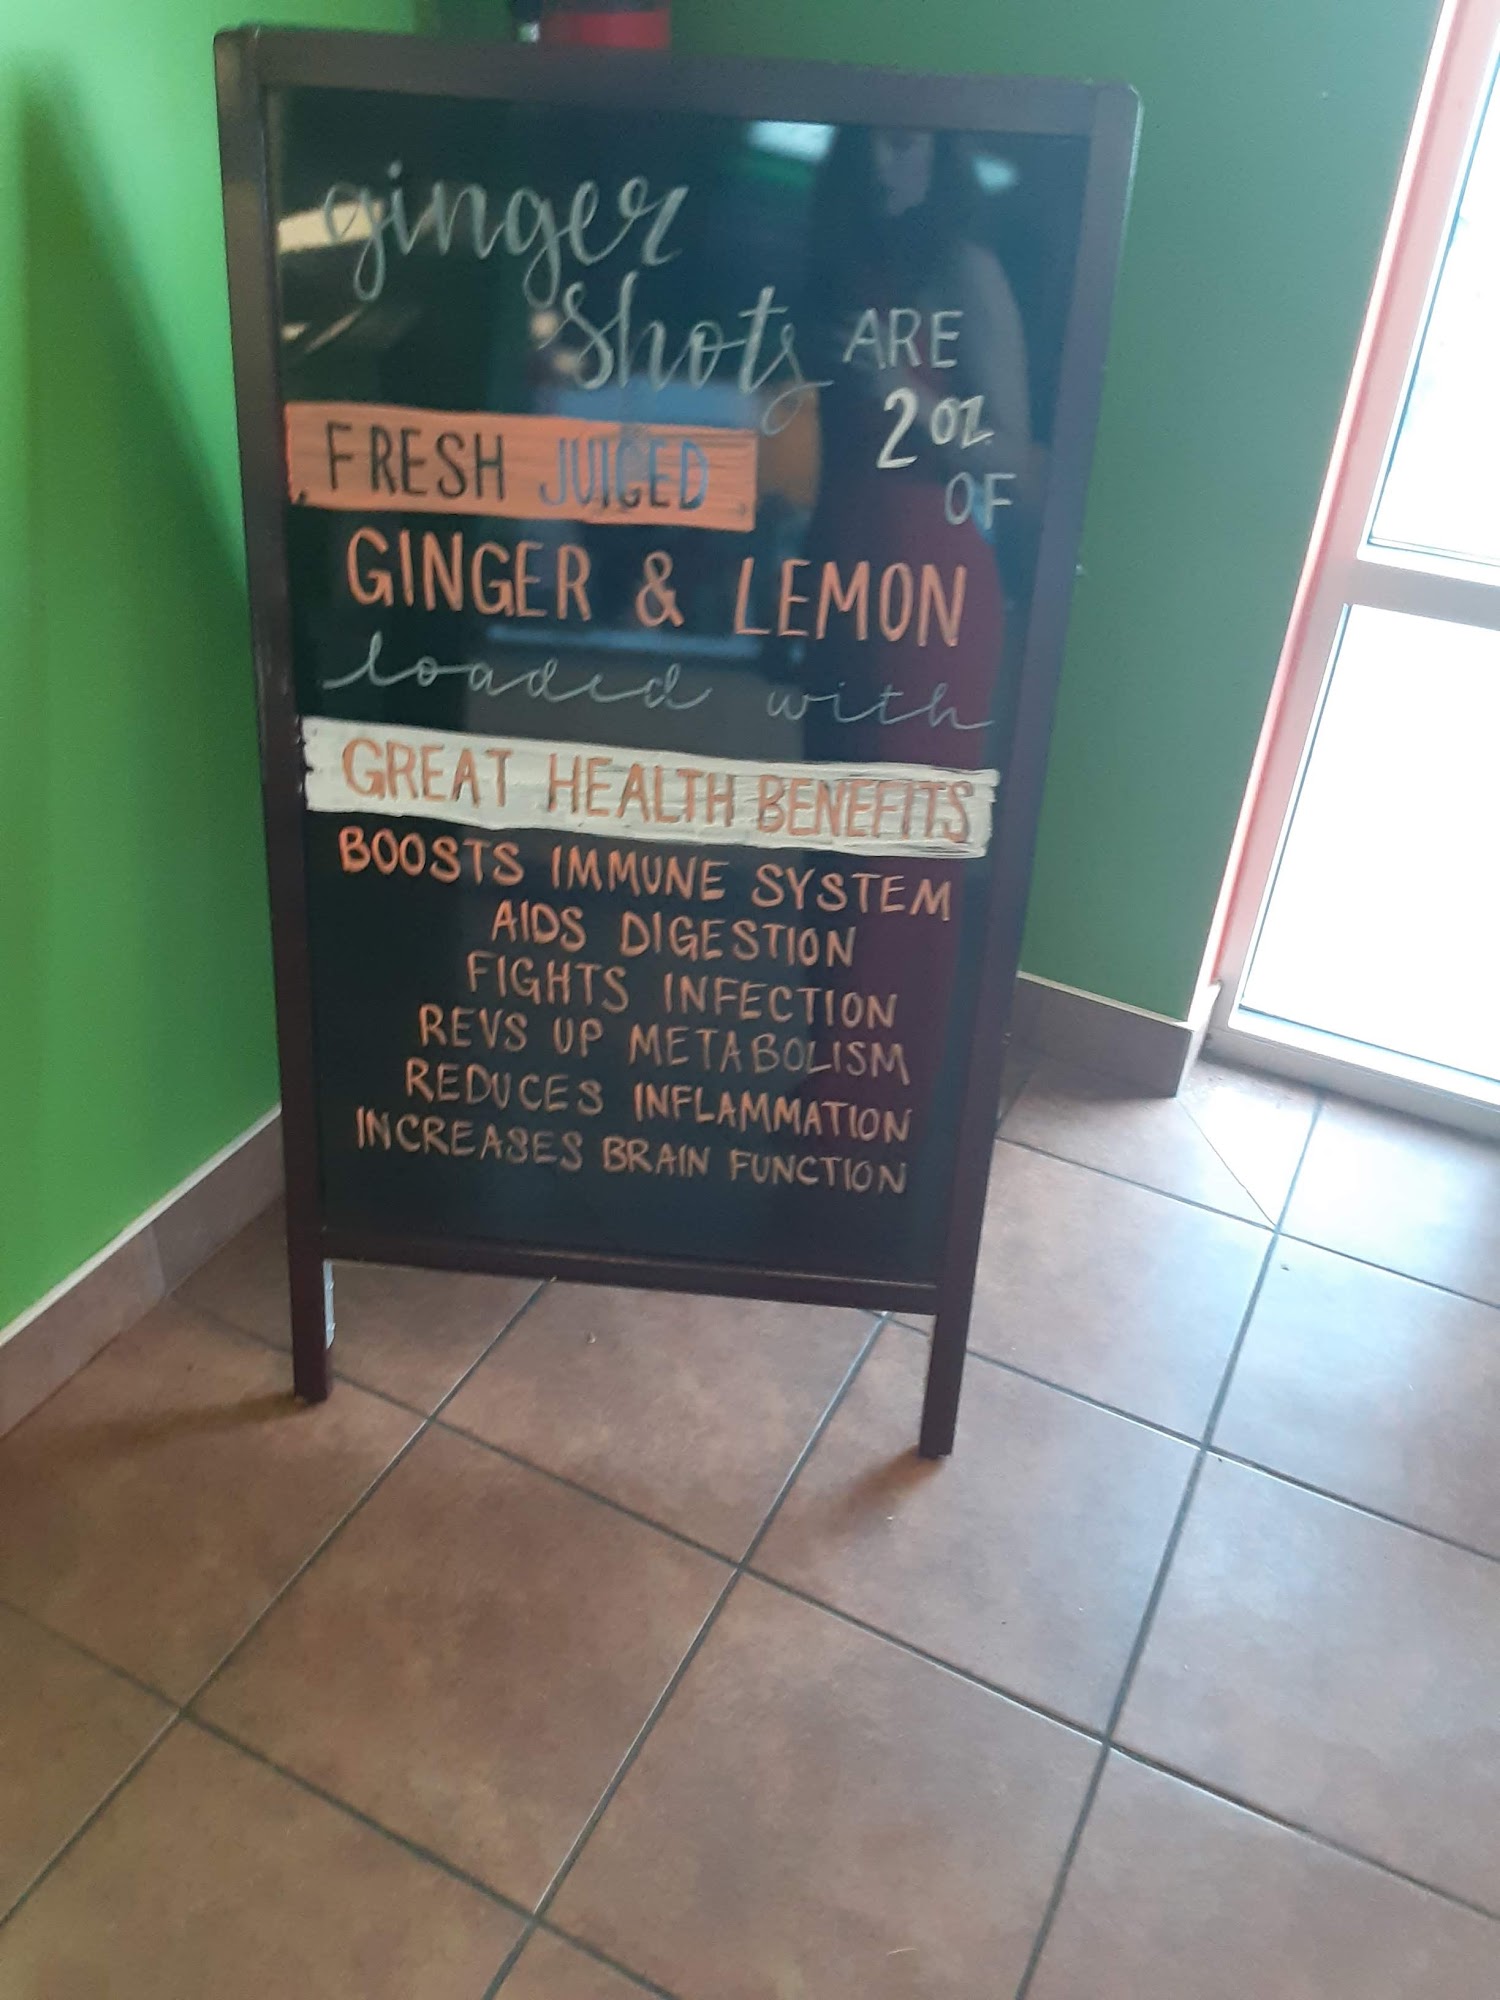 ginger
shots ARE
2 oz
OF
FRESH JUICED
GINGER & LEMON
loaded with
GREAT HEALTH BENEFITS
BOOSTS IMMUNE SYSTEM
AIDS DIGESTION
FIGHTS INFECTION
REVS UP METABOLISM
REDUCES INFLAMMATION
INCREASES BRAIN FUNCTION